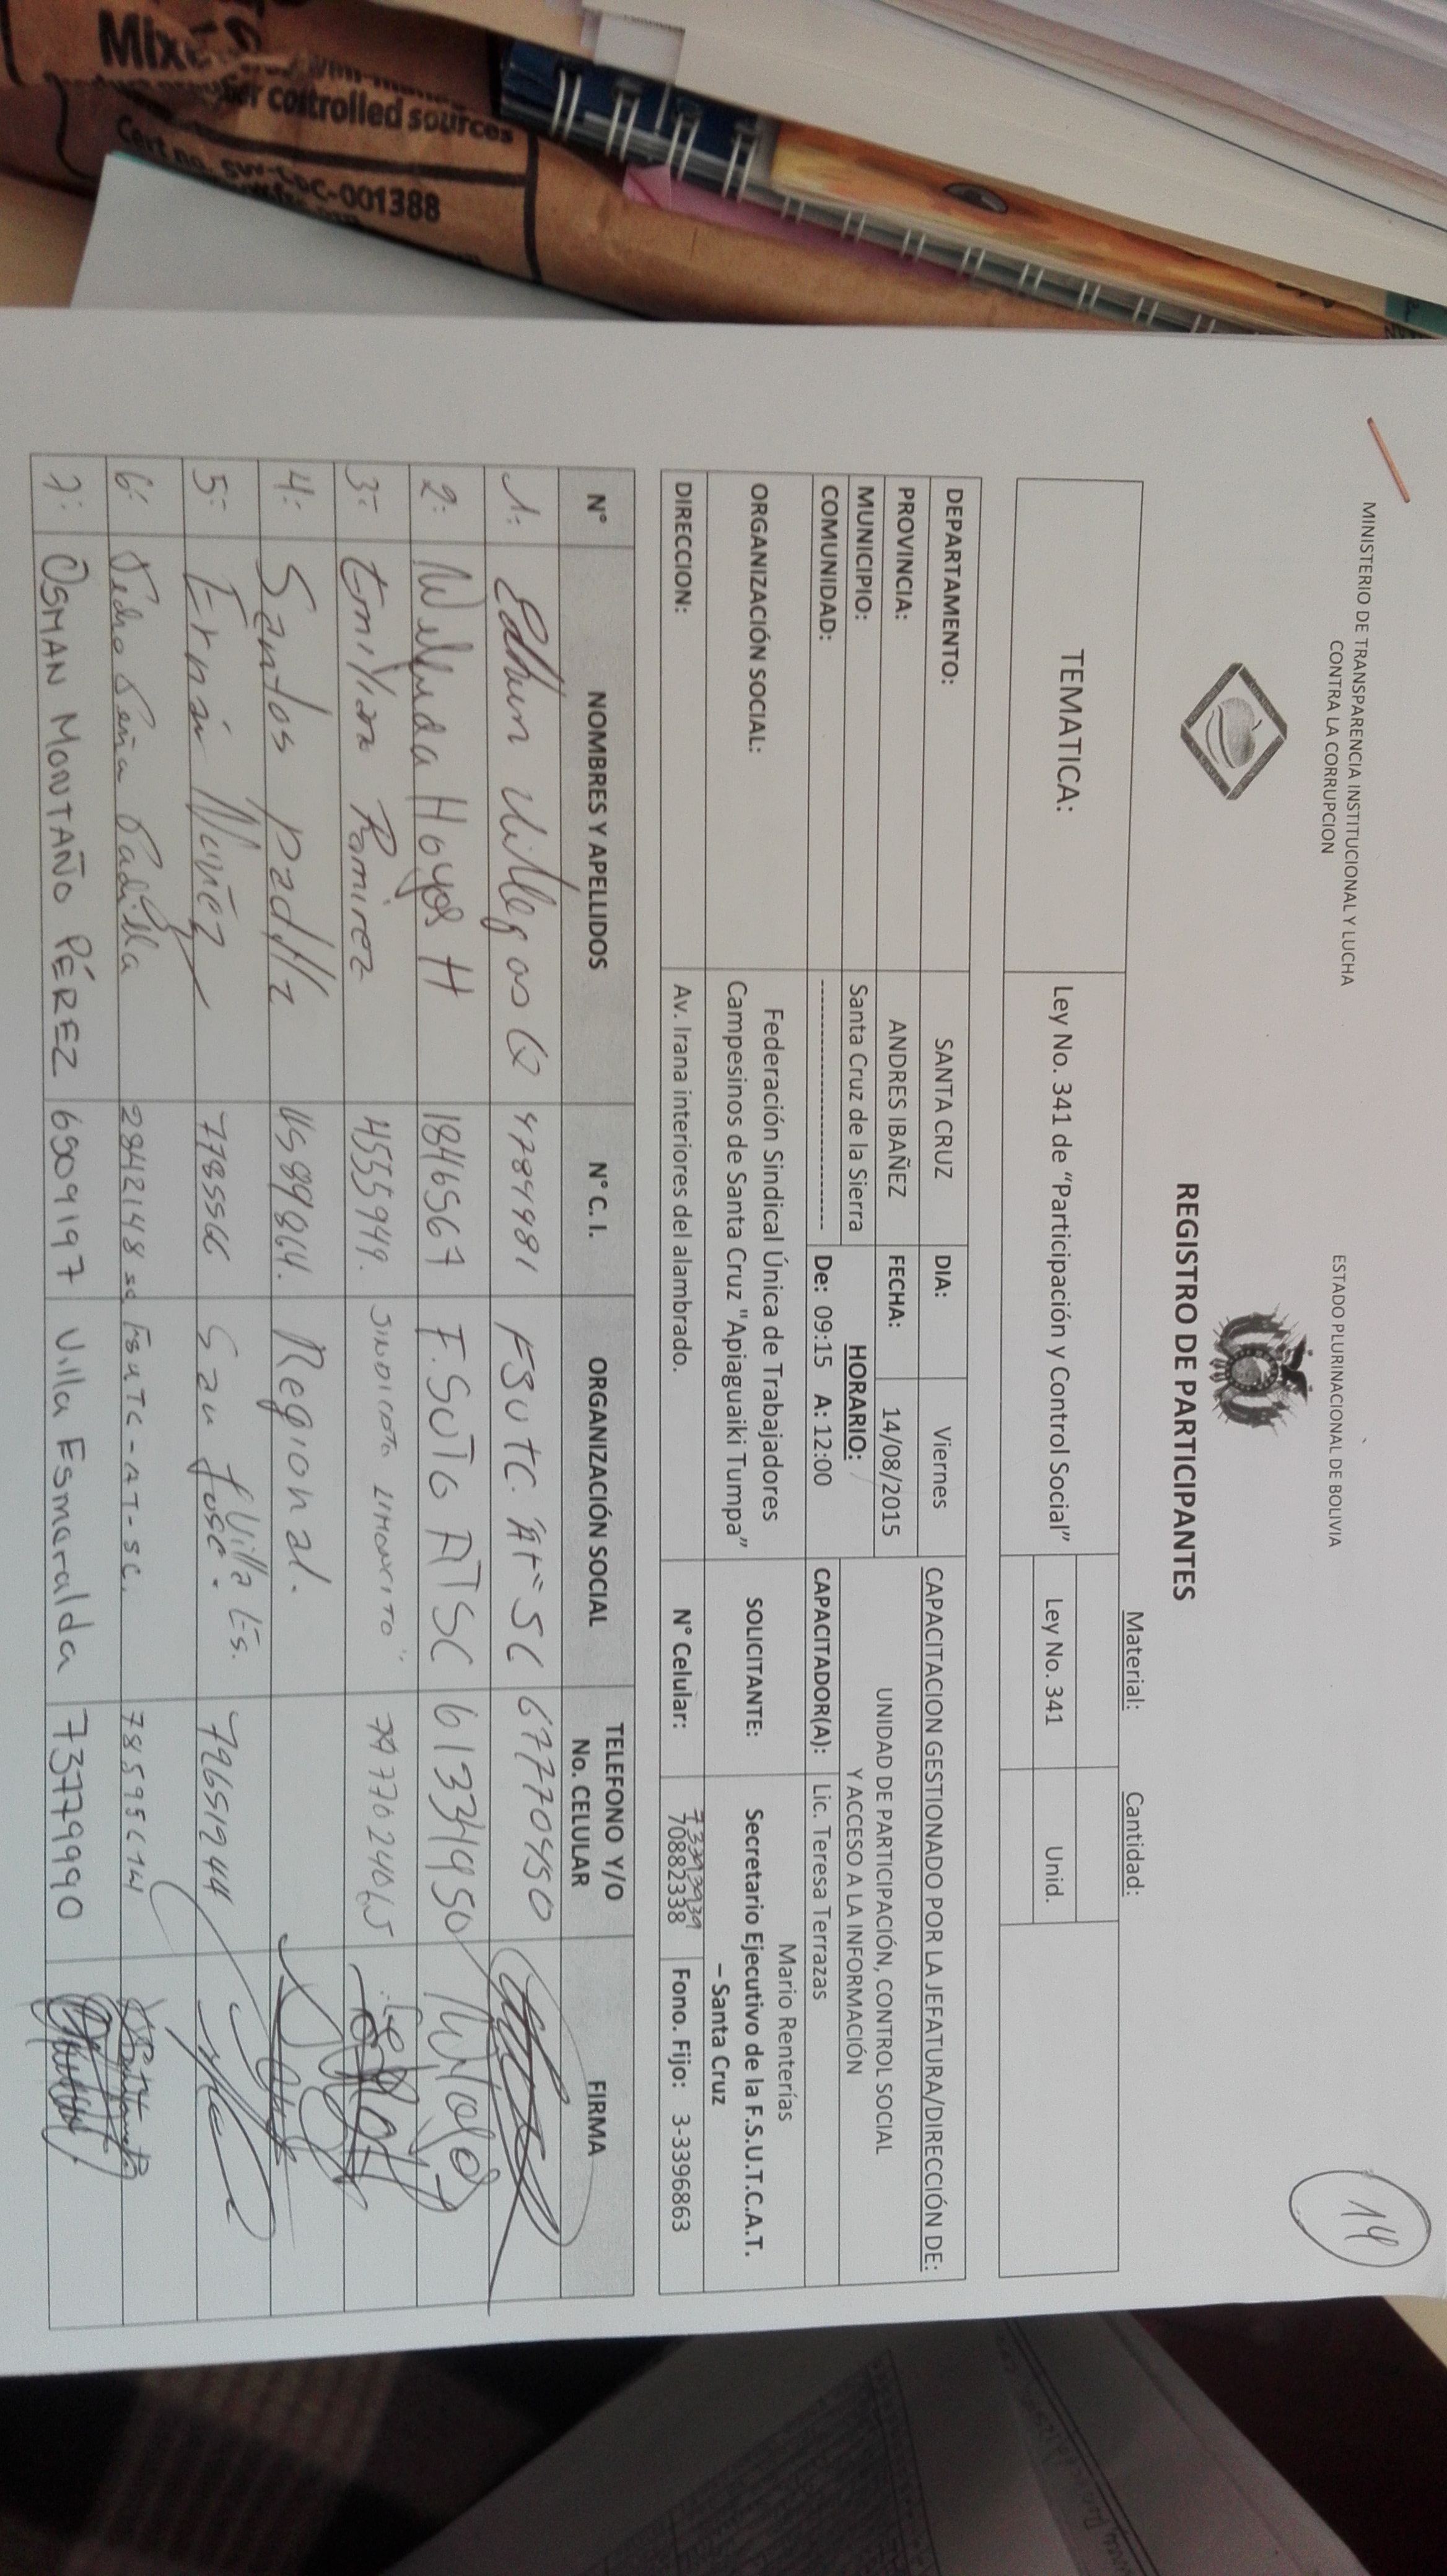 14
MINISTERIO DE TRANSPARENCIA INSTITUCIONAL Y LUCHA
CONTRA LA CORRUPCION
ESTADO PLURINACIONAL DE BOLIVIA
REGISTRO DE PARTICIPANTES
Material: Cantidad:
TEMATICA: Ley No. 341 de “Participación y Control Social” Ley No. 341 Unid.
DEPARTAMENTO: SANTA CRUZ DIA: Viernes CAPACITACION GESTIONADO POR LA JEFATURA/DIRECCIÓN DE:
PROVINCIA: ANDRES IBAÑEZ FECHA: 14/08/2015 UNIDAD DE PARTICIPACIÓN, CONTROL SOCIAL
MUNICIPIO: Santa Cruz de la Sierra HORARIO: Y ACCESO A LA INFORMACIÓN
COMUNIDAD: ------------------------------ De: 09:15 A: 12:00 CAPACITADOR(A): Lic. Teresa Terrazas
ORGANIZACIÓN SOCIAL: Federación Sindical Única de Trabajadores
Campesinos de Santa Cruz "Apiaguaiki Tumpa”
SOLICITANTE: Mario Renterías
Secretario Ejecutivo de la F.S.U.T.C.A.T.
– Santa Cruz
73393939
DIRECCION: Av. Irana interiores del alambrado. N° Celular: 70882338 Fono. Fijo: 3-3396863
N° NOMBRES Y APELLIDOS N° C. I. ORGANIZACIÓN SOCIAL TELEFONO Y/O
No. CELULAR FIRMA
1- Villegas Q 4784981 FSUTC. "AT" SC 67770450
2- Hoyos H 1846567 F.SUTG ATSC 61334950
3- Emiliano Ramirez 4555949. SINDICATO LIMONCITO" 77024065
4- Santos padilla 4589864. Regional.
5- Ernán Nuñez 7785566 San José. Villa Es. 72651244
6- Pedro Peña Padilla 2842148 sc FSUTC-AT-SC. 78595614
7- OSMAN MONTAÑO PÉREZ 6509197 Villa Esmeralda 73779990
controlled sources
Cert no.
-COC-001388